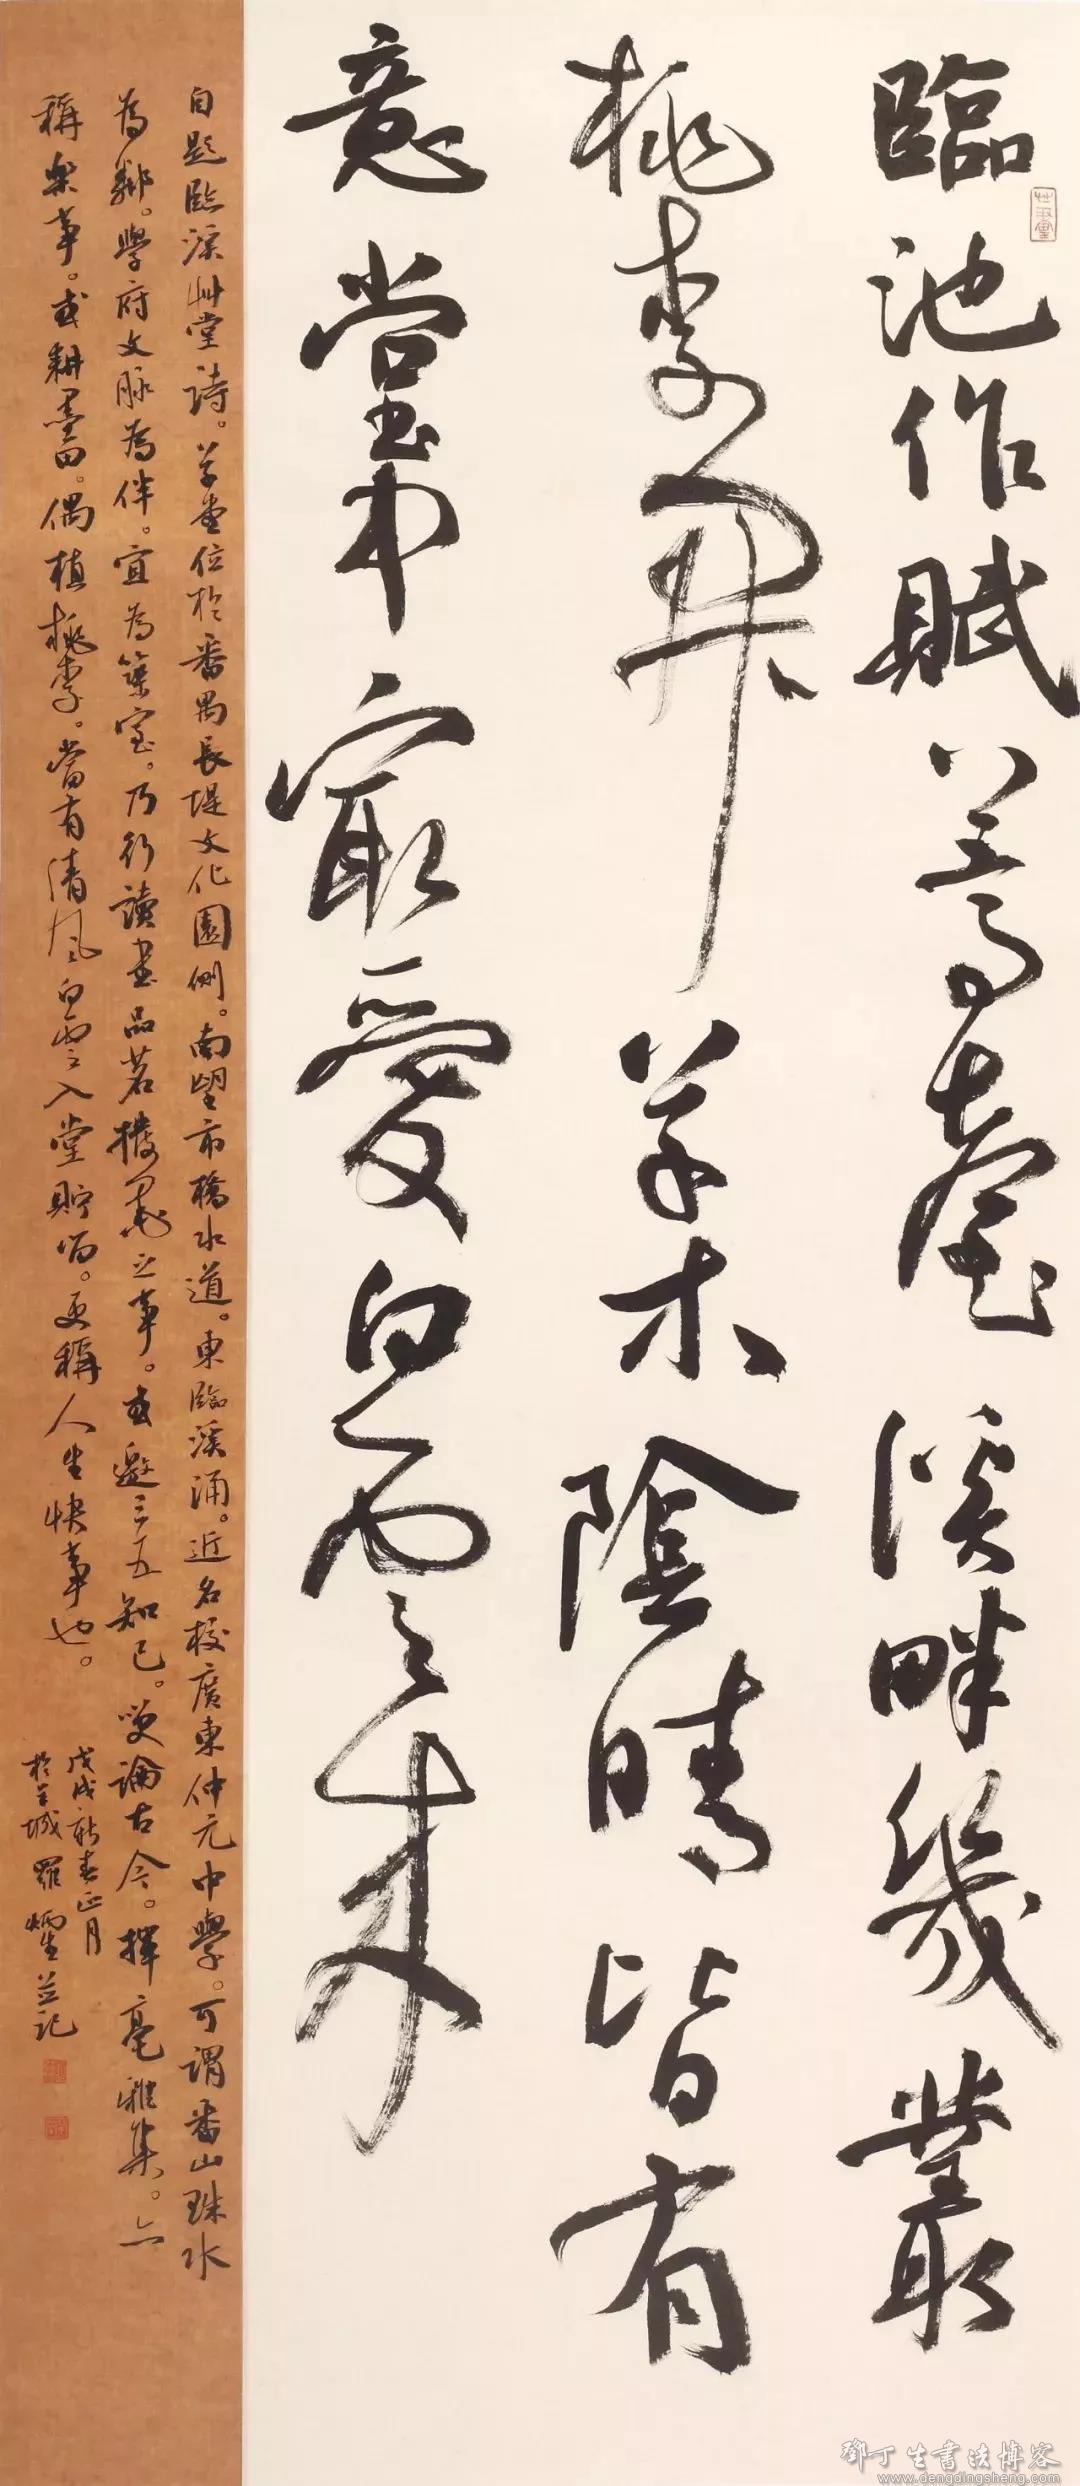 臨池作賦益高臺溪畔幾叢
桃李開草木陰晴皆有
意堂中最愛白雲來
自題臨溪艸堂詩。草堂位於番禺長堤文化園側。南望市橋水道。東臨溪涌。近名校廣東仲元中學。可謂番山珠水
為鄰。學府文脉為伴。宜為築室。乃行讀書品茗撥墨之事。或邀三五知己。笑論古今。揮毫雅集。亦
稱樂事。或耕墨田。偶植桃李。當有清風白雲入堂貯留。更稱人生快事也。
戊戌新春正月
於羊城羅炳生并記
鄧丁生書法博客
www.dengdingsheng.com